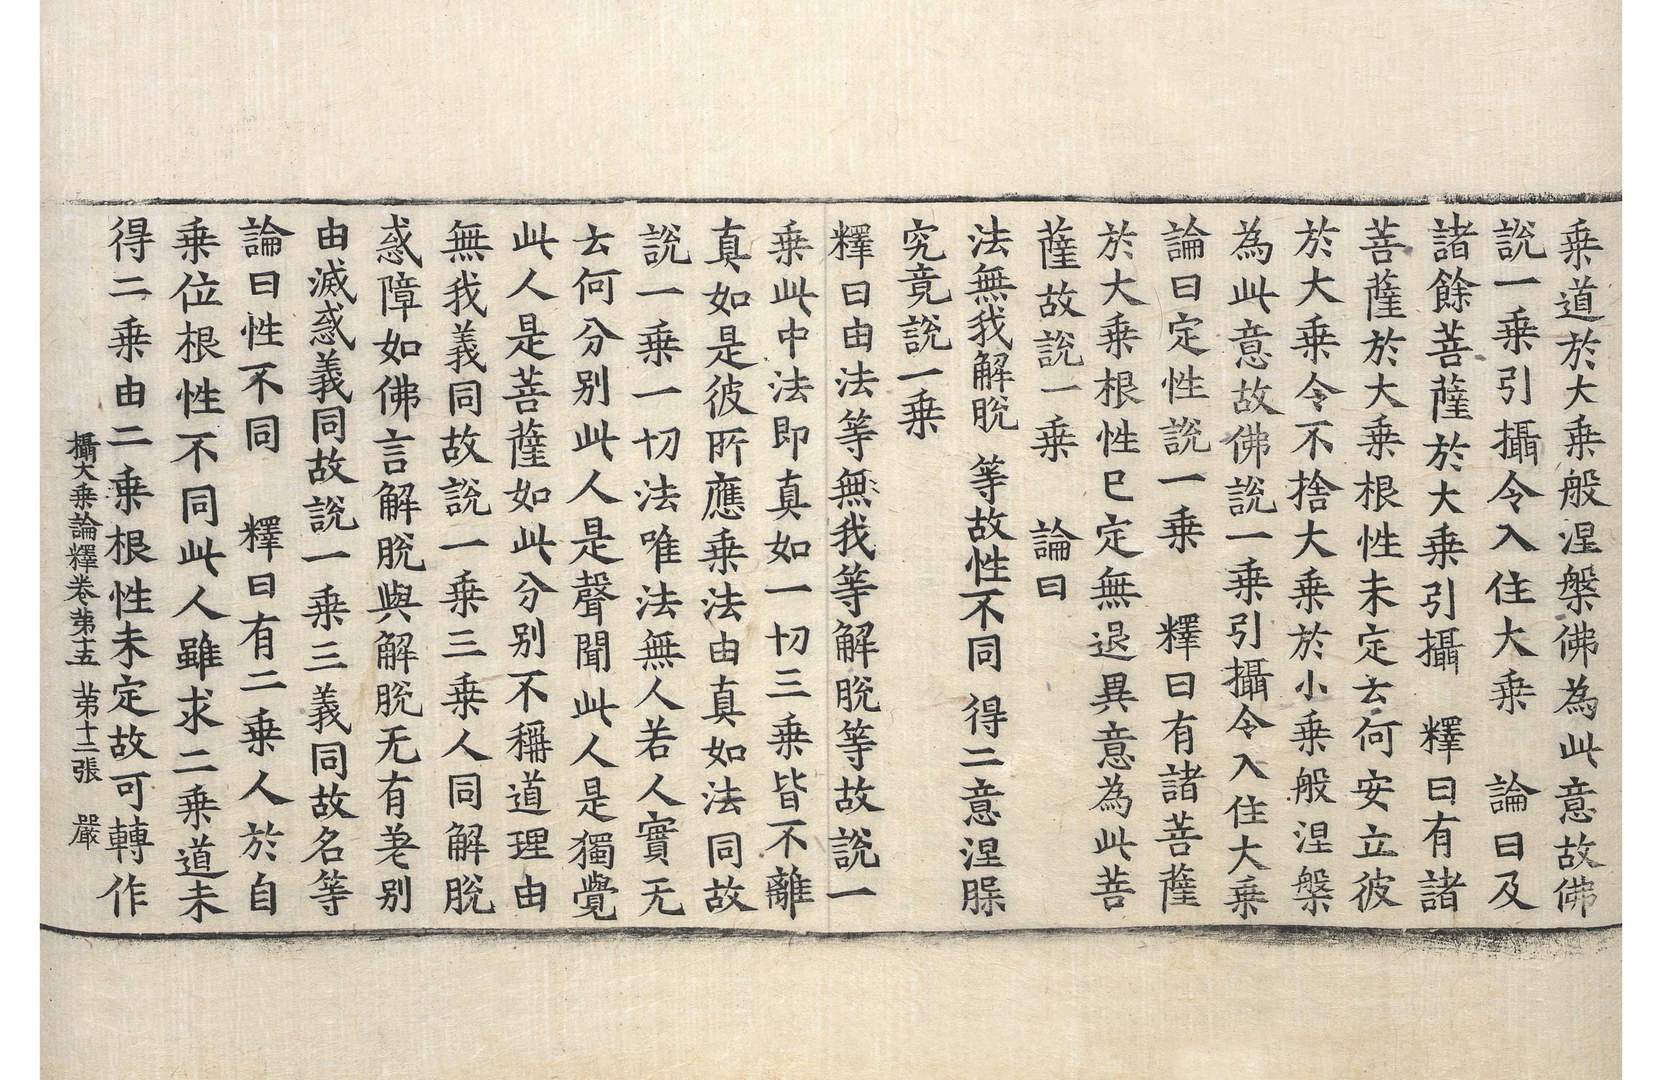 乗道於大乗般涅槃佛為此意故佛
說一乗引攝令入住大乗　論曰及
諸餘菩薩於大乗引攝　釋曰有諸
菩薩於大乗根性未定云何安立彼
於大乗令不捨大乗於小乗般涅槃
為此意故佛說一乗引攝令入住大乗
論曰定性說一乗　釋曰有諸菩薩
於大乗根性已定無退異意為此菩
薩故說一乗　論曰
法無我解脫　等故性不同　得二意涅𣖯
究竟說一乗
釋曰由法等無我等解脫等故說一
乗此中法即真如一切三乗皆不離
真如是彼所應乗法由真如法同故
說一乗一切法唯法無人若人實无
云何分別此人是聲聞此人是獨覺
此人是菩薩如此分別不稱道理由
無我義同故說一乗三乗人同解脫
惑障如佛言解脫與解脫无有差別
由滅惑義同故說一乗三義同故名等
論曰性不同　釋曰有二乗人於自
乗位根性不同此人雖求二乗道未
得二乗由二乗根性未定故可轉作
攝大乗論釋卷第十五　第十二張　嚴